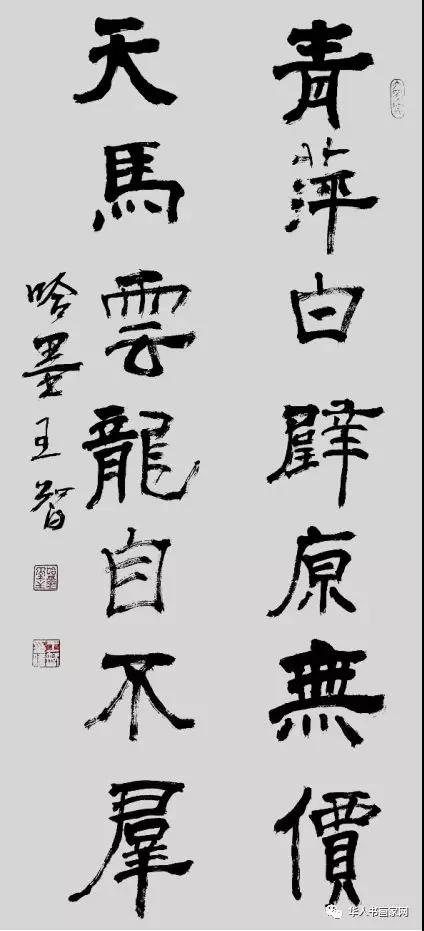 青萍白璧原無價
天馬雲龍自不羣
吟墨王智
华人书画家网